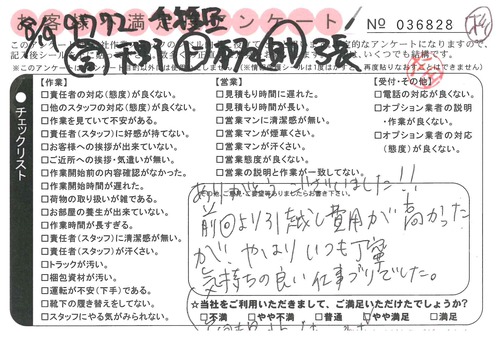 お客様満足アンケート
No 036828
【作業】
□責任者の対応(態度)が良くない。
□他のスタッフの対応(態度)が良くない。
□作業を見ていて不安がある。
□責任者(スタッフ)に好感が持てない。
□お客様への挨拶が出来ていない。
□ご近所への挨拶・気遣いが無い。
□作業開始前の内容確認がなかった。
□作業開始時間が遅れた。
□荷物の取り扱いが雑である。
□お部屋の養生が出来ていない。
□作業時間が長すぎる。
□責任者(スタッフ)に清潔感が無い。
□責任者(スタッフ)が汗くさい。
□トラックが汚い。
□梱包資材が汚い。
□運転が不安(下手)である。
□靴下の履き替えをしてない。
□スタッフにやる気がみられない。
【営業】
□見積もり時間に遅れた。
□見積もり時間が長い。
□営業マンに清潔感が無い。
□営業マンが煙草くさい。
□営業マンが汗くさい。
□営業態度が良くない。
□営業の説明と作業が一致してない。
【受付・その他】
□電話の対応が良くない。
□オプション業者の説明
・作業が良くない。
□オプション業者の対応
(態度)が良くない。
チェックリスト
ありがとうございました!!
前回より引越し費用が高かった
が、やはりいつも丁寧
気持ちの良い仕事づりでした。
☆当社をご利用いただきまして、ご満足いただけたでしょうか?
□不満 □やや不満 □普通 □やや満足 □満足